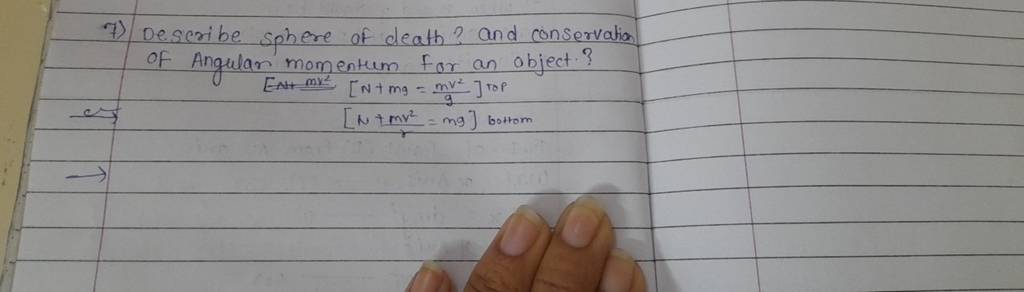 7) Describe sphere of death? and conservation
of Angular momentum for an object.?
[N + mg = mv²/g] TOP
[N + mv²/r = mg] bottom
→